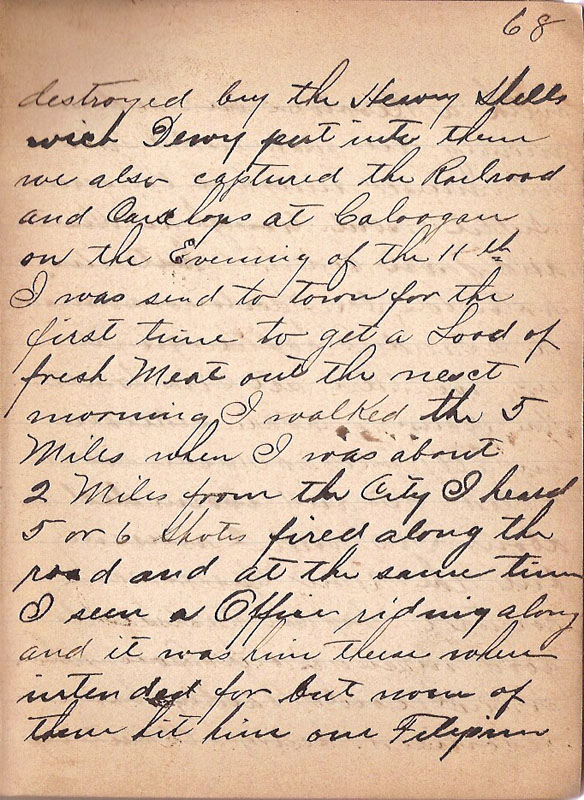 68
destroyed buy the Heavy Shells
wich Dewy put into them
we also captured the Railroad
and Carshops at Caloogan
on the Evening of the 11th
I was send to town for the
first time to get a Lood of
fresh Meat out the next
morning I walked the 5
Miles when I was about
2 Miles from the City I heard
5 or 6 Shots fired along the
road and at the same time
I seen a Officer riding along
and it was him these where
intended for but none of
them hit him one Filipino